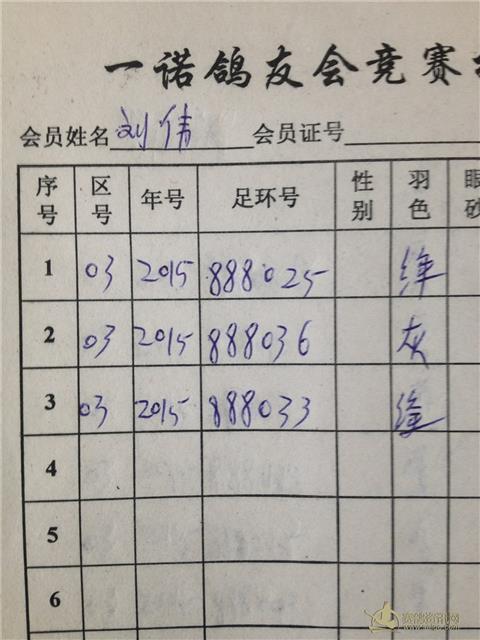 一诺鸽友会竞赛
会员姓名 刘伟 会员证号
序号 区号 年号 足环号 性别 羽色 眼砂
1 03 2015 888025 绛
2 03 2015 888036 灰
3 03 2015 888033 绛
4
5
6